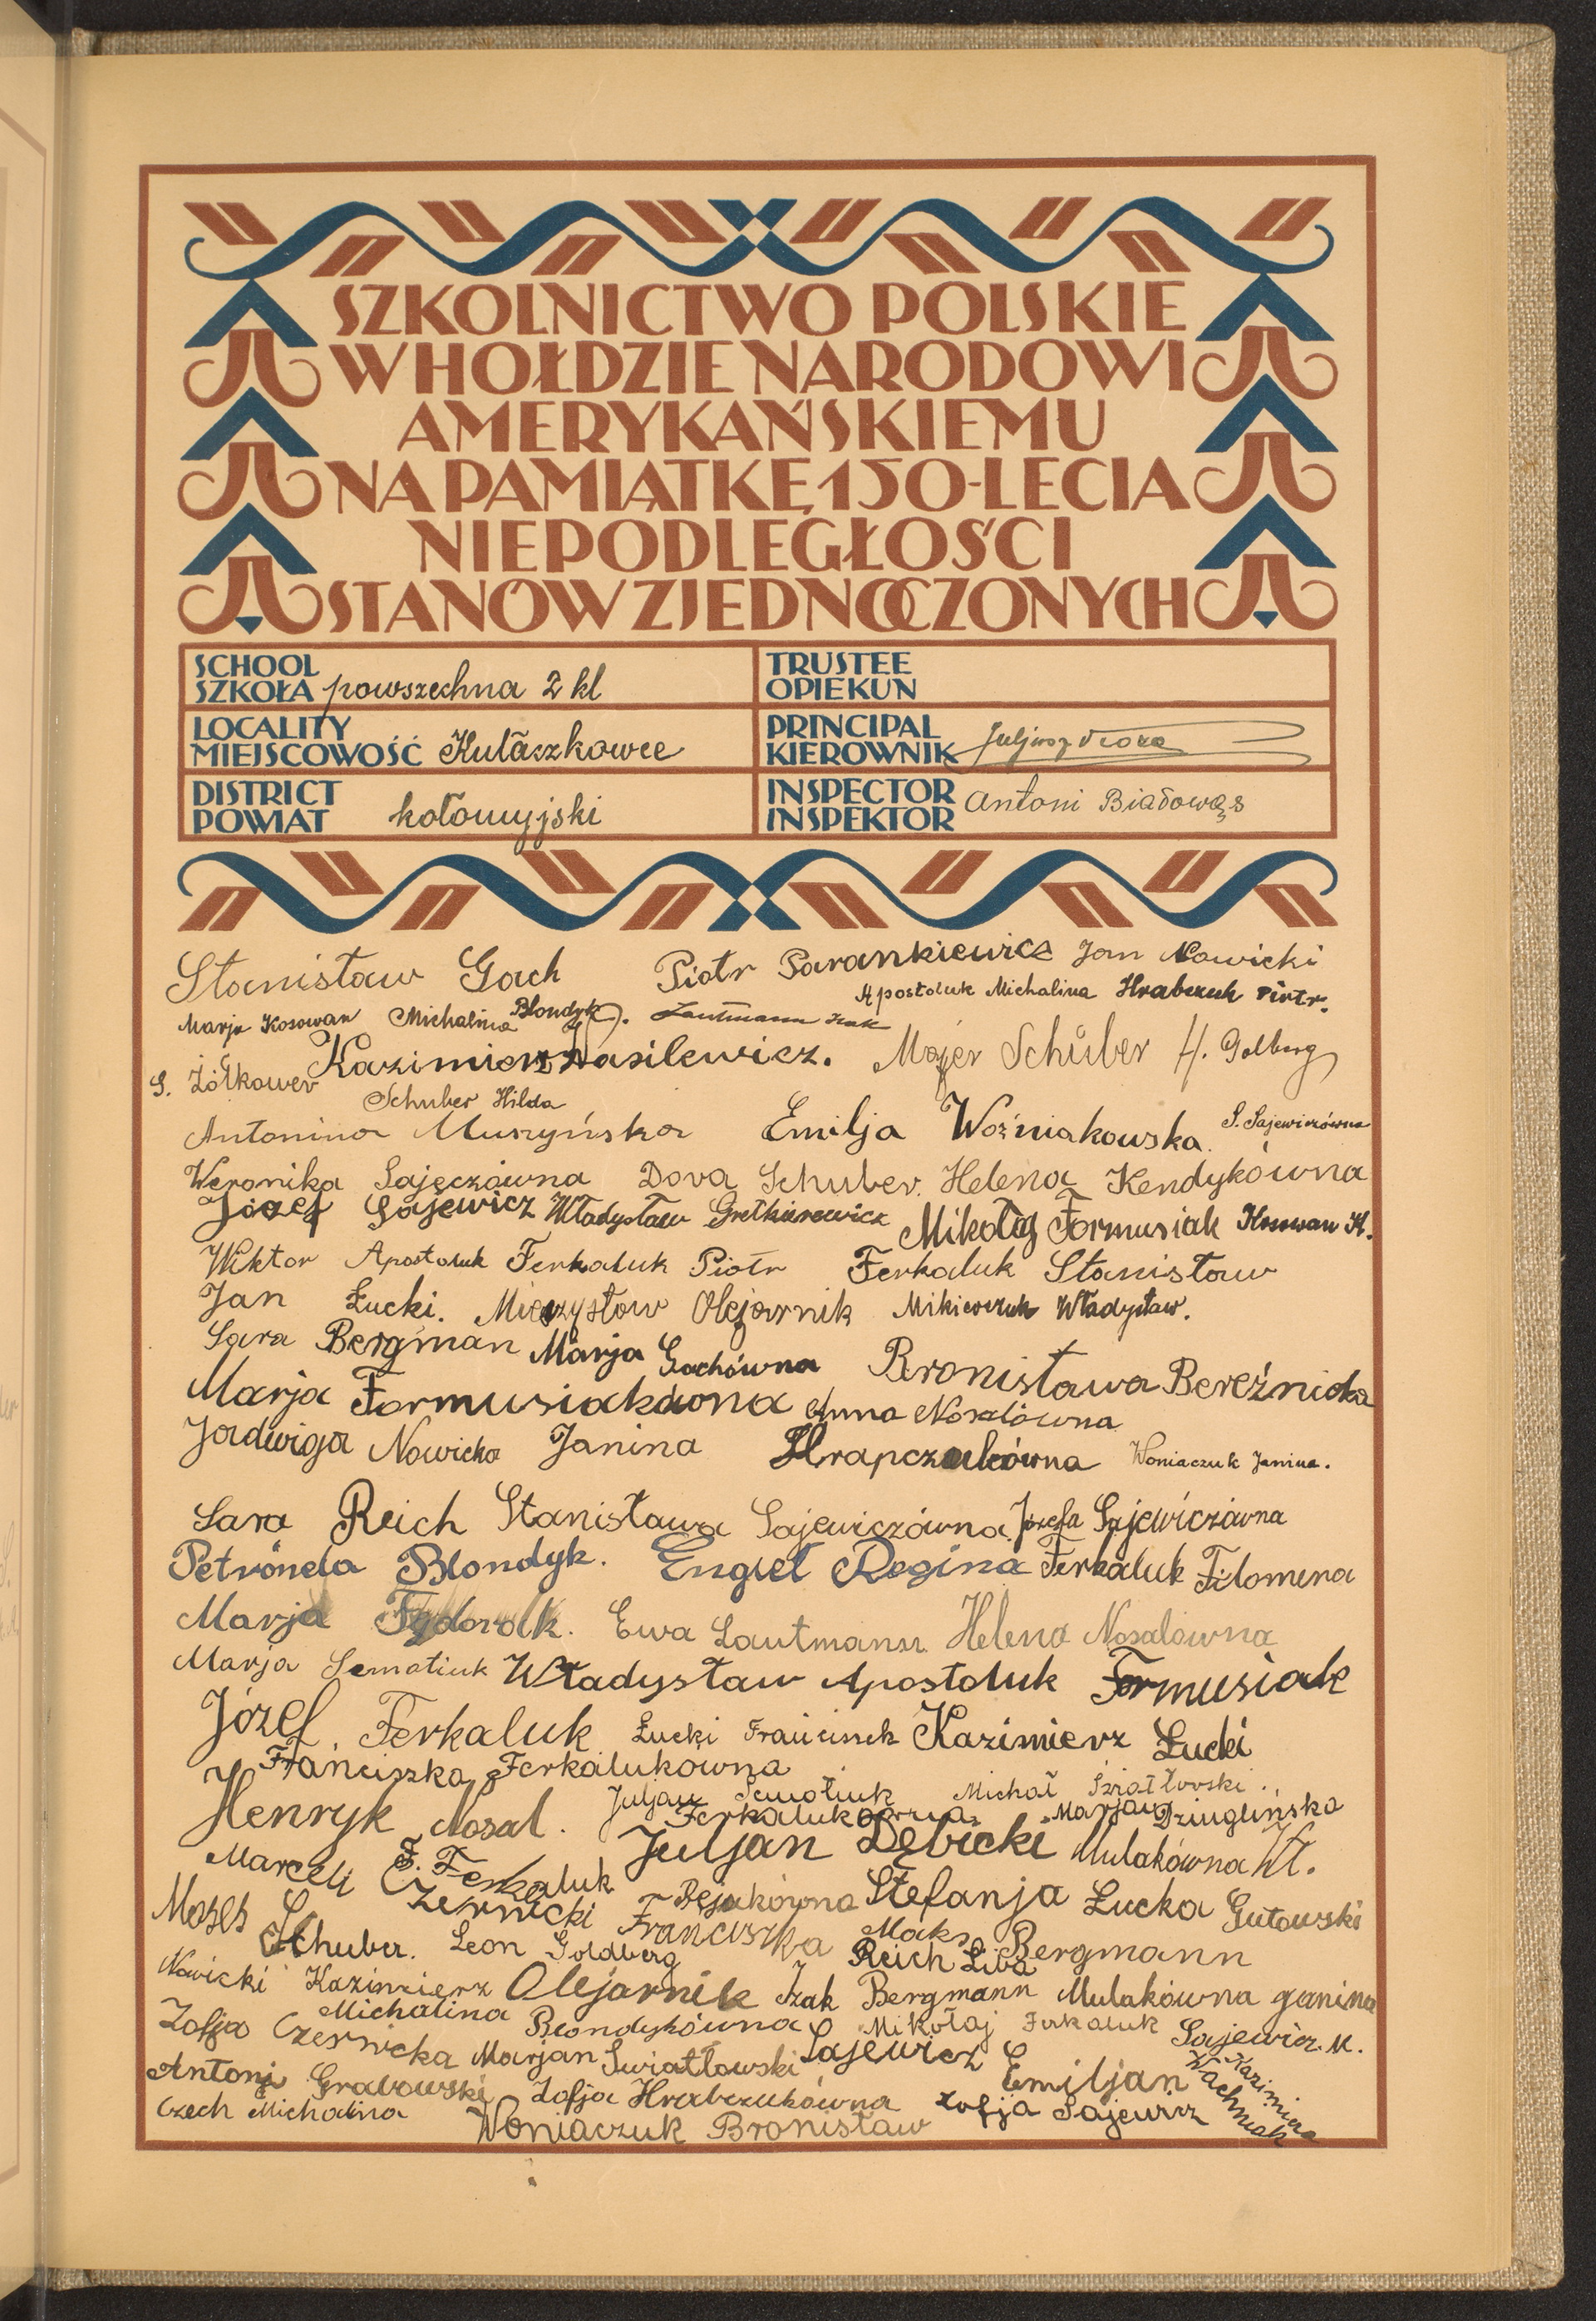 SZKOLNICTWO POLSKIE
W HOŁDZIE NARODOWI
AMERYKAŃSKIEMU
NA PAMIĄTKĘ 150-LECIA
NIEPODLEGŁOŚCI
STANÓW ZJEDNOCZONYCH
SCHOOL
SZKOŁA powszechna 2 kl
TRUSTEE
OPIEKUN
LOCALITY
MIEJSCOWOŚĆ Kułaszkowce
PRINCIPAL
KIEROWNIK
DISTRICT
POWIAT kołomyjski
INSPECTOR
INSPEKTOR Antoni Białowąs
Stanisław Gach Piotr Parankiewicz Jan Nowicki
Apostoluk Michalina Hrabczuk Piotr.
Marja Kosowan Michalina Blondyk Lautmann Izak
Kazimierz Wasilewicz. Majer Schüber H. Golberg
S. Żółkower Schuber Hilda
Antonina Muszyńska Emilja Woźniakowska S. Sajewiczówna
Weronika Sajęczówna Dora Schuber. Helena Kendykówna
Józef Sajewicz Władysław Mikołaj Formusiak Kosowan K.
Wiktor Apostoluk Ferkaluk Piotr Ferkaluk Stanisław
Jan Łucki. Mieczysław Olejarnik Władysław.
Sara Bergman Marja Gachówna Bronisława Bereźnicka
Marja Formusiakówna Anna Nosalówna
Jadwiga Nowicka Janina Hrapczukówna Woniaczuk Janina.
Sara Reich Stanisława Sajewiczówna Józefa Sajewiczówna
Petronela Blondyk. Engiel Regina Ferkaluk Filomena
Marja Fydorak. Ewa Lautmann Helena Nosalówna
Marja Semotiuk Władysław Apostoluk Formusiak
Józef Ferkaluk Łucki Franciszek Kazimierz Łucki
Franciszka Ferkalukowna
Henryk Nosal. Juljan Semotiuk Michał Światłowski.
Ferkalukówna Marjan Dziuglińska
Marceli F. Ferkaluk Juljan Dębicki Mulakówna Wł.
Czernicki Franciszka Stefanja Łucka Gutowski
Moses Schuber. Leon Goldberg Maks Bergmann
Reich Liba
Nowicki Kazimierz Olejarnik Izak Bergmann Mulakówna Janina
Michalina Blondykówna Mikołaj Ferkaluk Sajewicz M.
Zofja Czernicka Marjan Światłowski Sajewicz Emiljan
Antoni Grabowski Zofja Hrabczukówna Zofja Sajewicz
Kazimiera Wachniak
Czech Michalina Woniaczuk Bronisław